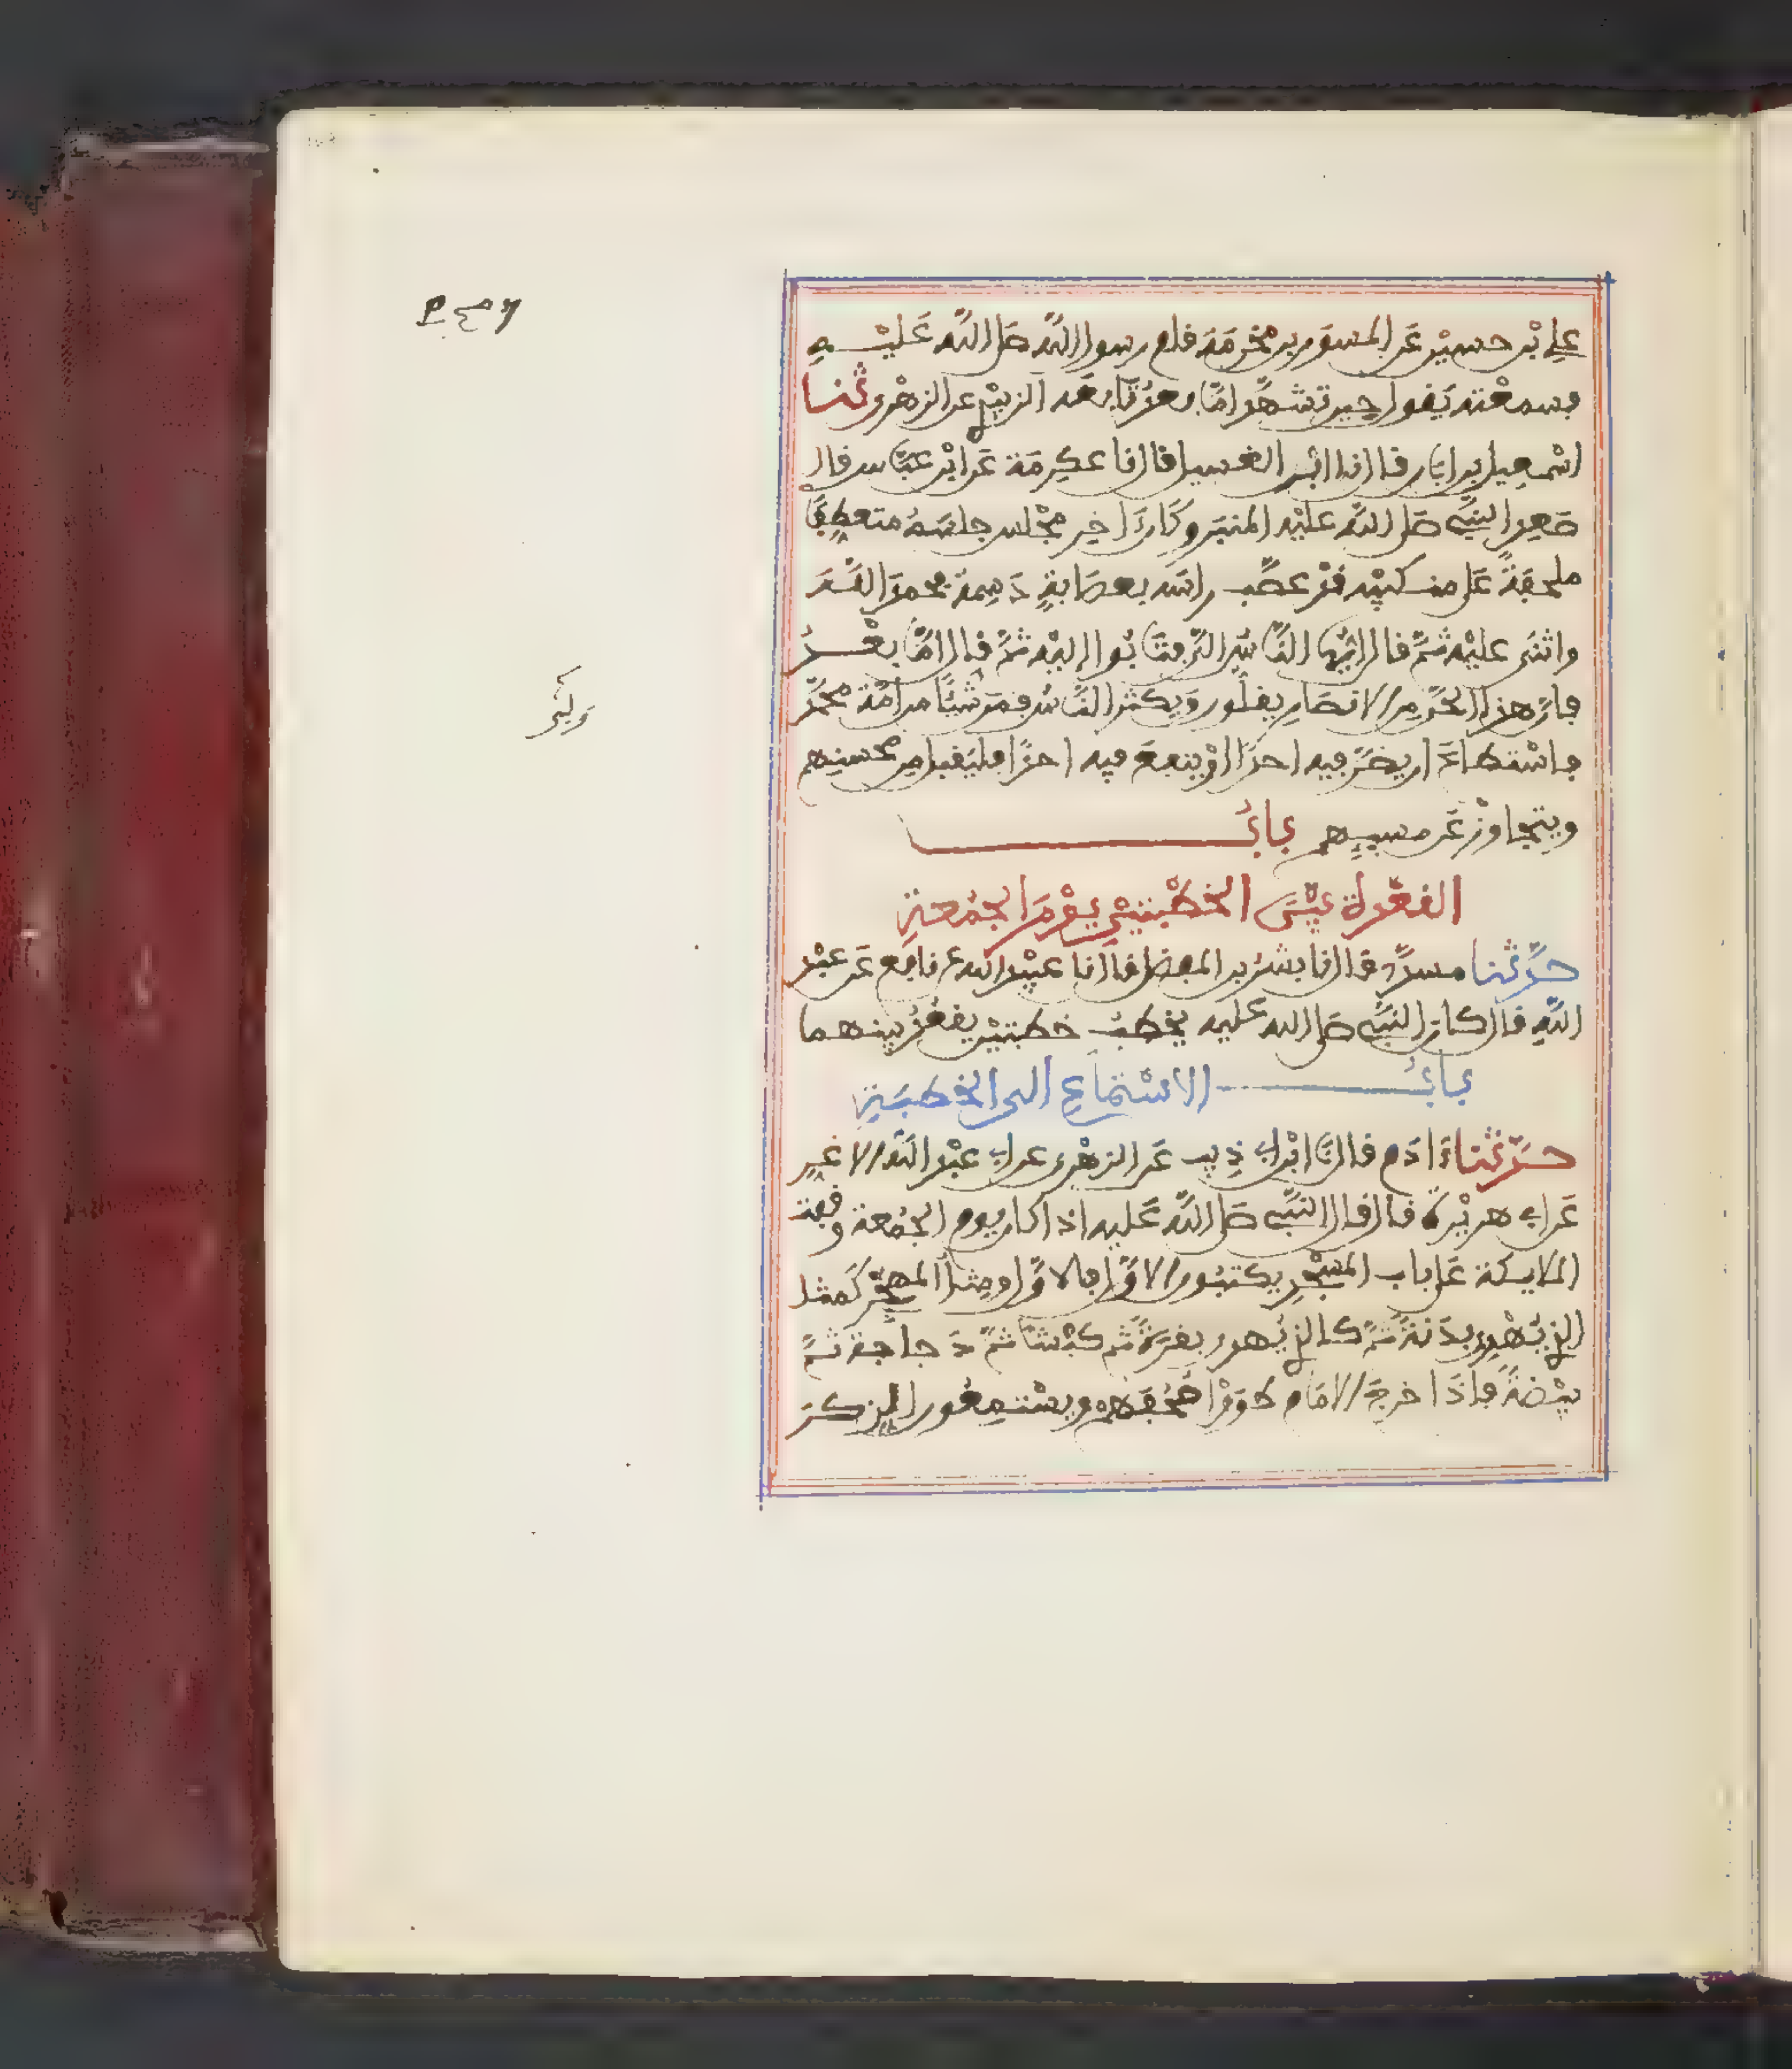 علي بن حسين عن المسور بن مخرمة قام رسول الله صلى الله عليه
فسمعته يقول حين تشهد اما بعد تابعه الزبيدي عن الزهري ثنا
اسمعيل بن ابان قال نا ابن الغسيل قال نا عكرمة عن ابن عباس قال
صعد النبي صلى الله عليه المنبر وكان اخر مجلس جلسه متعطفا
ملحفة على منكبيه قد عصب راسه بعصابة دسمة فحمد الله
واثنى عليه ثم قال ايها الناس الي فثابوا اليه ثم قال اما بعد
فان هذا الحي من الانصار يقلون ويكثر الناس فمن شيئا من امة محمد
فاستطاع ان يضر فيه احدا او ينفع فيه احدا فليقبل من محسنهم
ويتجاوز عن مسيهم باب
القعدة بين الخطبتين يوم الجمعة
حدثنا مسدد قال نا بشر بن المفضل قال نا عبيد الله عن نافع عن عبد
الله قال كان النبي صلى الله عليه يخطب خطبتين يقعد بينهما
باب الاستماع الى الخطبة
حدثنا ءادم قال نا ابن ابي ذيب عن الزهري عن ابي عبد الله الاغر
عن ابي هريرة قال قال النبي صلى الله عليه اذا كان يوم الجمعة وقفت
الملايكة على باب المسجد يكتبون الاول فالاول ومثل المهجر كمثل
الذي يهدي بدنة ثم كالذي يهدي بقرة ثم كبشا ثم دجاجة ثم
بيضة فاذا خرج الامام طووا صحفهم ويستمعون الذكر
ولي